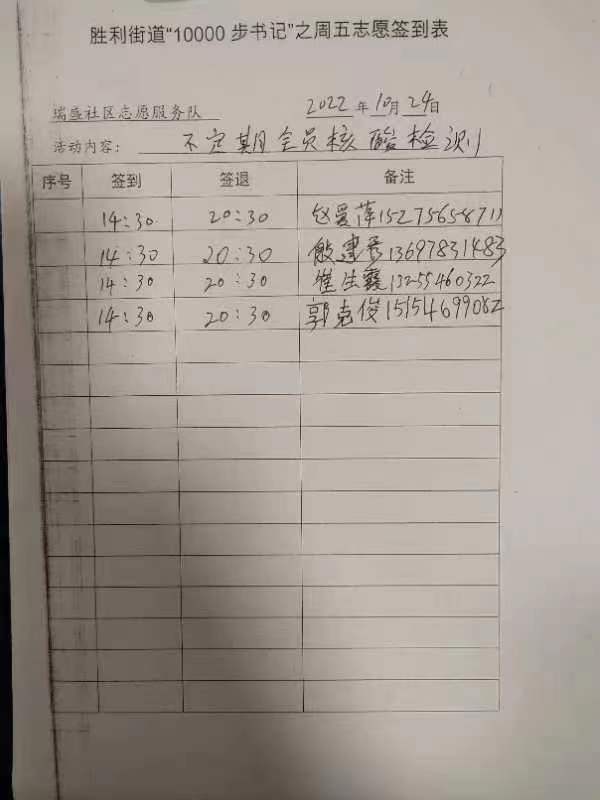 胜利街道“10000 步书记”之周五志愿签到表
瑞盛社区志愿服务队 2022 年 10 月 24 日
活动内容: 不定期全员核酸检测
序号 签到 签退 备注
14:30 20:30 赵爱萍15275658711
14:30 20:30 殷建 13697831483
14:30 20:30 崔 霞13255460322
14:30 20:30 郭克俊15154699082